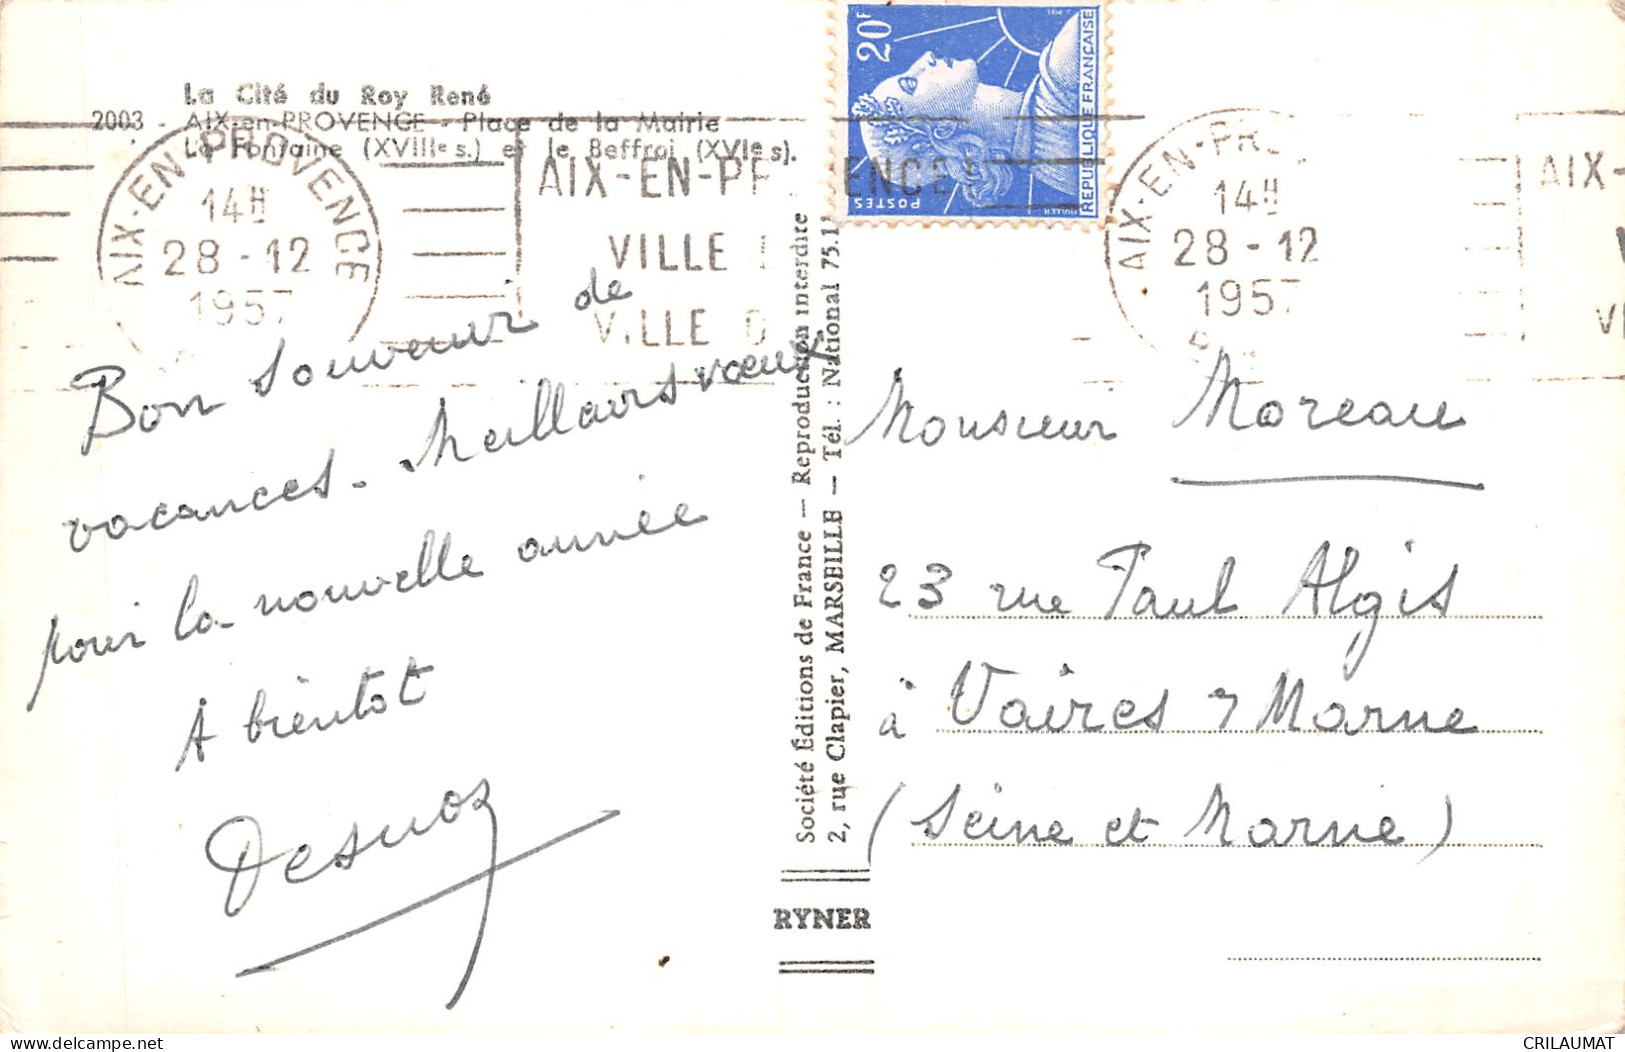 La Cité du Roy René
2003 - AIX-en-PROVENCE - Place de la Mairie
La Fontaine (XVIIIe s.) et le Beffroi (XVIe s).
AIX-EN-PROVENCE
14H
28-12
1957
AIX-EN-PR ENCE!
VILLE
VILLE D
20F
POSTES
REPUBLIQUE FRANÇAISE
MULLER
J. PIEL
AIX-EN-PR
14H
28-12
1957
AIX-
V
VI
Bon souvenir de
vacances - Meilleurs vœux
pour la nouvelle année
A bientot
Desnoz
Société Éditions de France — Reproduction interdite
2, rue Clapier, MARSEILLE — Tél. : National 75.1
RYNER
Monsieur Moreau
23 rue Paul Algis
à Vaires s/ Marne
(Seine et Marne)
CRILAUMAT